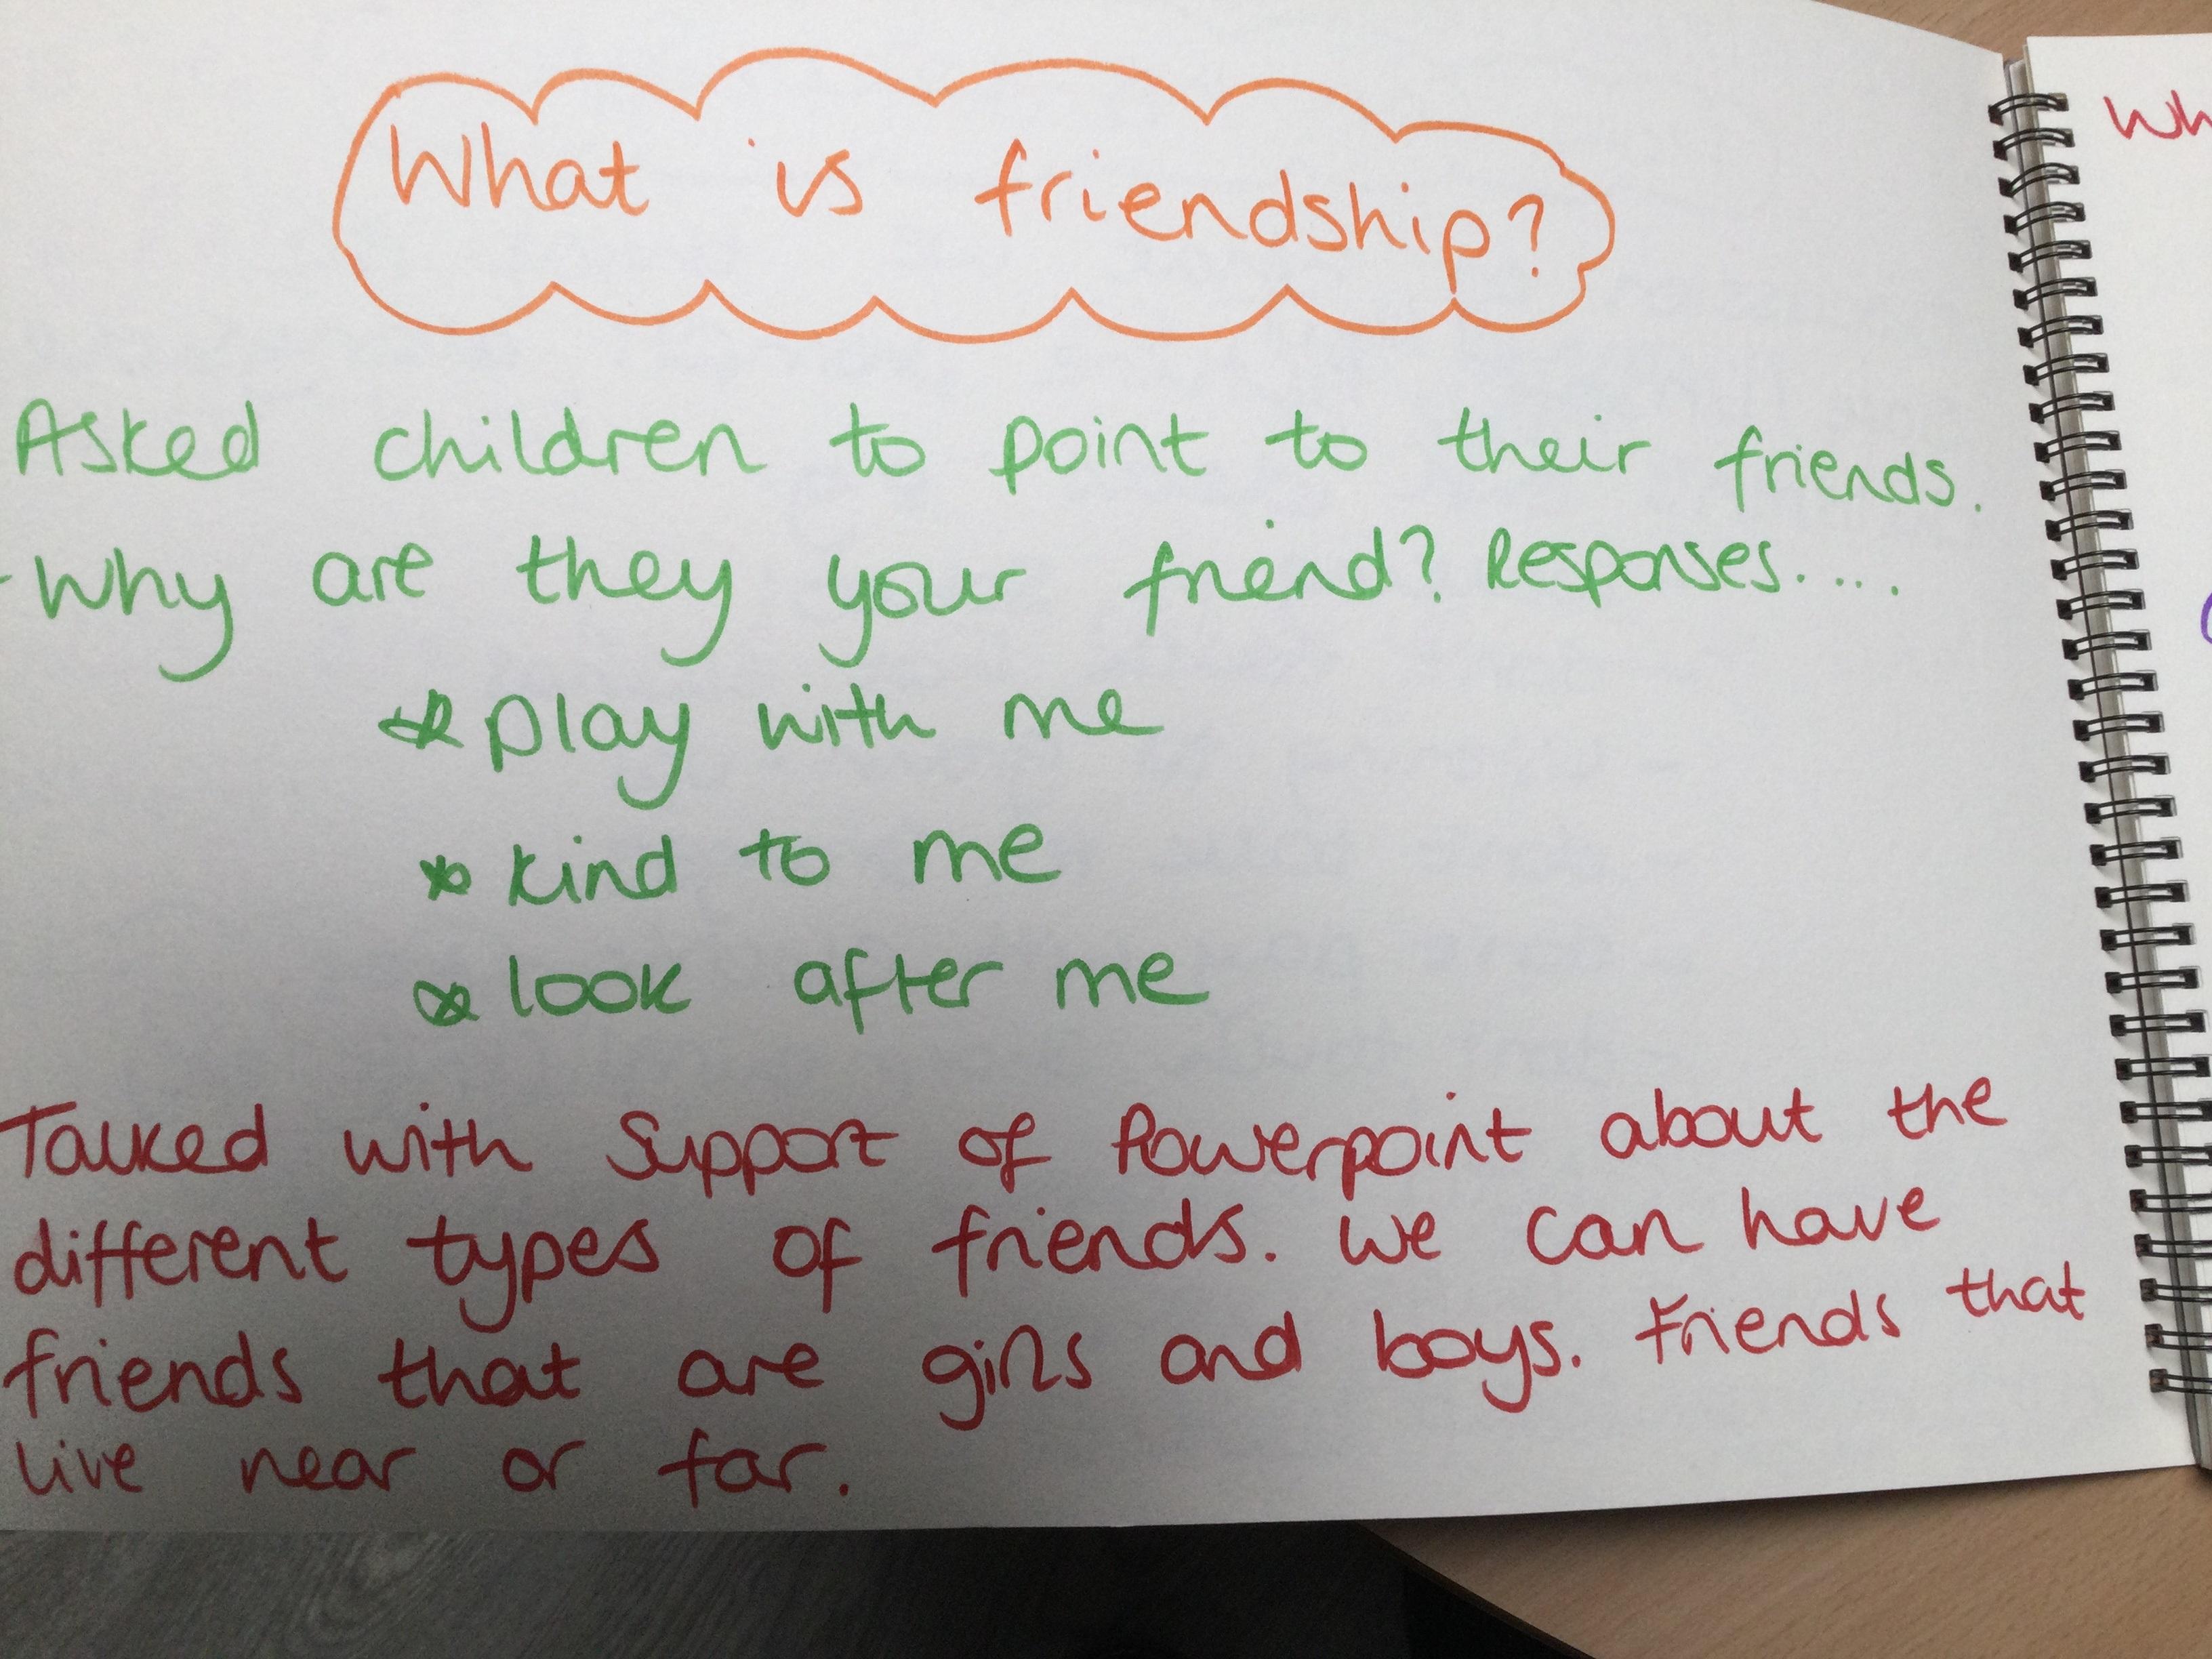 What is friendship?
Asked children to point to their friends.
-Why are they your friend? Responses....
* play with me
* kind to me
* look after me
Talked with support of Powerpoint about the
different types of friends. We can have
friends that are girls and boys. Friends that
live near or far.
Wh